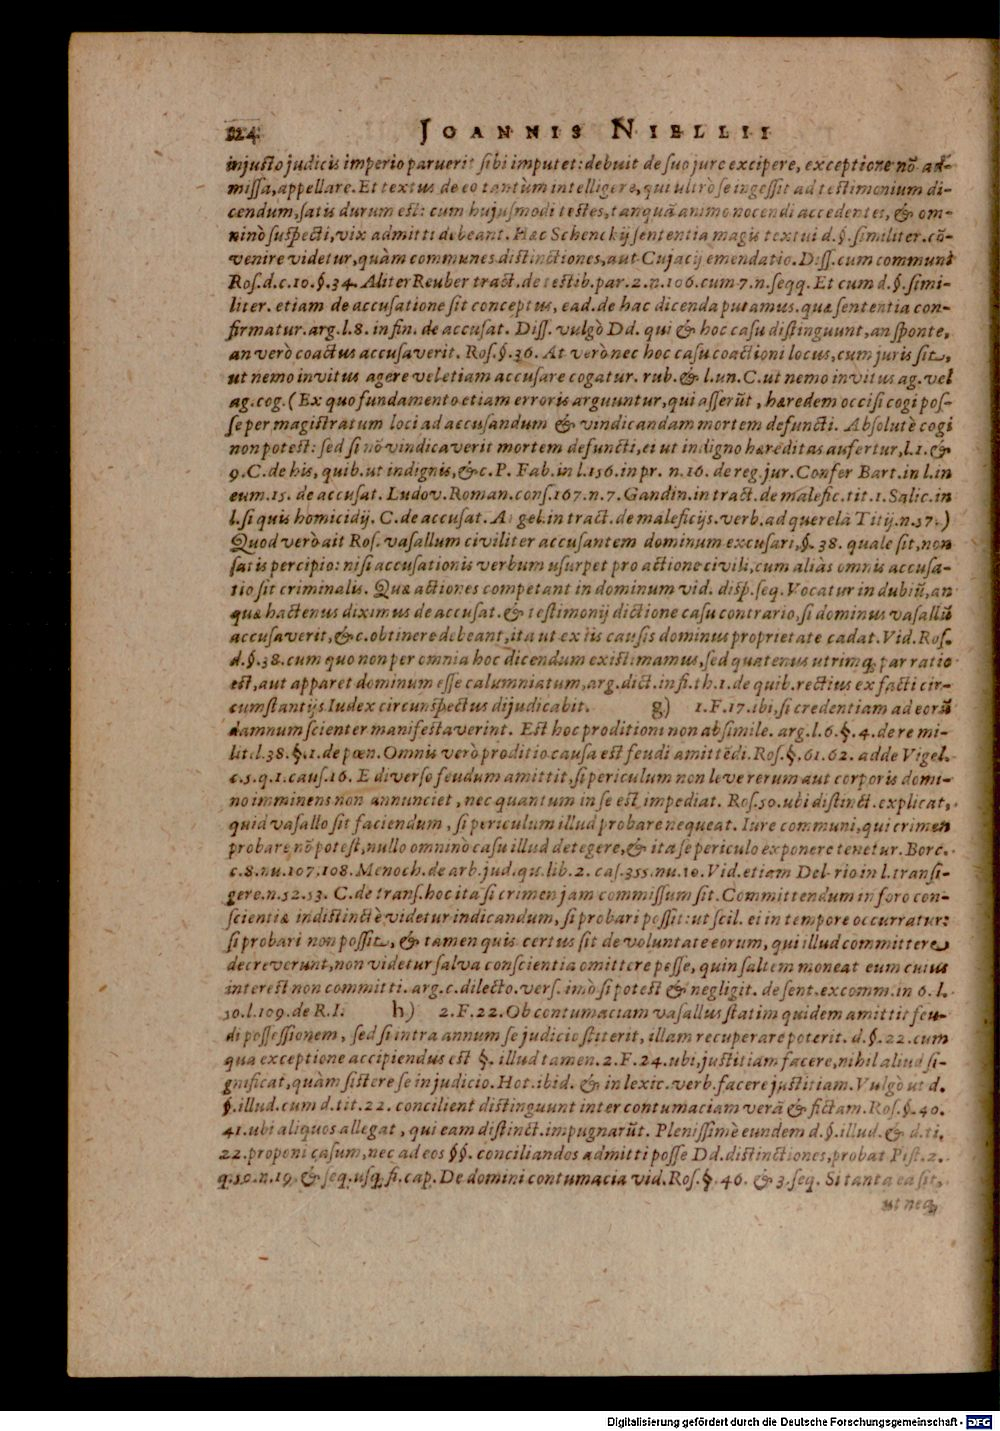 124
JOANNIS NIELLII
injusto judicis imperio paruerit sibi imputet: debuit de suo jure excipere, exceptione nõ ad-
missa, appellare. Et textus de eo tantùm intelligere, qui ultrò se ingessit ad testimonium di-
cendum, satis durum est: cum hujusmodi testes, tanquã animo nocendi accedentes, & om-
ninò suspecti, vix admitti debeant. Hæc Schenckij sententia magis textui d. §. similiter. cõ-
venire videtur, quàm communes distinctiones, aut Cujacij emendatio. Diss. cum communi
Ros. d. c. 10. §. 34. Aliter Reuber tract. de testib. par. 2. n. 106. cum 7. n. seqq. Et cum d. §. simi-
liter. etiam de accusatione sit conceptus, ead. de hac dicenda putamus. quæ sententia con-
firmatur. arg. l. 8. in fin. de accusat. Diss. vulgò Dd. qui & hoc casu distinguunt, an sponte,
an verò coactus accusaverit. Ros. §. 36. At verò nec hoc casu coactioni locus, cum juris sit,
ut nemo invitus agere vel etiam accusare cogatur. rub. & l. un. C. ut nemo invitus ag. vel
ag. cog. (Ex quo fundamento etiam erroris arguuntur, qui asserũt, hæredem occisi cogi pos-
se per magistratum loci ad accusandum & vindicandam mortem defuncti. Absolutè cogi
non potest: sed si nõ vindicaverit mortem defuncti, ei ut indigno hæreditas aufertur, l. 1. &
9. C. de his, quib. ut indignis, &c. P. Fab. in l. 156. in pr. n. 16. de reg. jur. Confer Bart. in l. in
eum. 15. de accusat. Ludov. Roman. cons. 167. n. 7. Gandin. in tract. de malefic. tit. 1. Salic. in
l. si quis homicidij. C. de accusat. Angel. in tract. de maleficijs. verb. ad querelã Titij. n. 57.)
Quod verò ait Ros. vasallum civiliter accusantem dominum excusari, §. 38. quale sit, non
satis percipio: nisi accusationis verbum usurpet pro actione civili, cum aliàs omnis accusa-
tio sit criminalis. Quæ actiones competant in dominum vid. disp. seq. Vocatur in dubiũ, an
quæ hactenus diximus de accusat. & testimonij dictione casu contrario, si dominus vasallũ
accusaverit, &c. obtinere debeant, ita ut ex iis causis dominus proprietate cadat. Vid. Ros.
d. §. 38. cum quo non per omnia hoc dicendum existimamus, sed quatenus utrimq; par ratio
est, aut apparet dominum esse calumniatum, arg. dict. in fi. th. 1. de quib. rectius ex facti cir-
cumstantijs Iudex circunspectus dijudicabit. g) 1. F. 17. ibi, si credentiam ad eorũ
damnum scienter manifestaverint. Est hoc proditioni non absimile. arg. l. 6. §. 4. de re mi-
lit. l. 38. §. 1. de pœn. Omnis verò proditio causa est feudi amittẽdi. Ros. §. 61. 62. adde Vigel.
c. 5. q. 1. caus. 16. E diverso feudum amittit, si periculum non leve rerum aut corporis domi-
no imminens non annunciet, nec quantum in se est impediat. Ros. 50. ubi distinct. explicat,
quid vasallo sit faciendum, si periculum illud probare nequeat. Iure communi, qui crimen
probare nõ potest, nullo omninò casu illud detegere, & ita se periculo exponere tenetur. Borc.
c. 8. nu. 107. 108. Menoch. de arb. jud. qu. lib. 2. cas. 355. nu. 10. Vid. etiam Del-rio in l. transi-
gere. n. 52. 53. C. de trans. hoc ita si crimen jam commissum sit. Committendum in foro con-
scientiæ indistinctè videtur indicandum, si probari possit: ut scil. ei in tempore occurratur:
si probari non possit, & tamen quis certus sit de voluntate eorum, qui illud committere
decreverunt, non videtur salva conscientia omittere posse, quin saltem moneat eum cuius
interest non committi. arg. c. dilecto. vers. imò si potest & negligit. de sent. excomm. in 6. l.
50. l. 109. de R. I. h) 2. F. 22. Ob contumaciam vasallus statim quidem amittit feu-
di possessionem, sed si intra annum se judicio stiterit, illam recuperare poterit. d. §. 22. cum
qua exceptione accipiendus est §. illud tamen. 2. F. 24. ubi, justitiam facere, nihil aliud si-
gnificat, quàm sistere se in judicio. Hot. ibid. & in lexic. verb. facere justitiam. Vulgò ut d.
§. illud. cum d. tit. 22. concilient distinguunt inter contumaciam verã & fictam. Ros. §. 40.
41. ubi aliquos allegat, qui eam distinct. impugnarũt. Plenissimè eundem d. §. illud. & d. ti.
22. proponi casum, nec ad eos §§. conciliandos admitti posse Dd. distinctiones, probat Pist. 2.
q. 50. n. 19. & seq. usq; fi. cap. De domini contumacia vid. Ros. §. 46. & 3. seq. Si tanta ea sit,
ut neq;
Digitalisierung gefördert durch die Deutsche Forschungsgemeinschaft - DFG